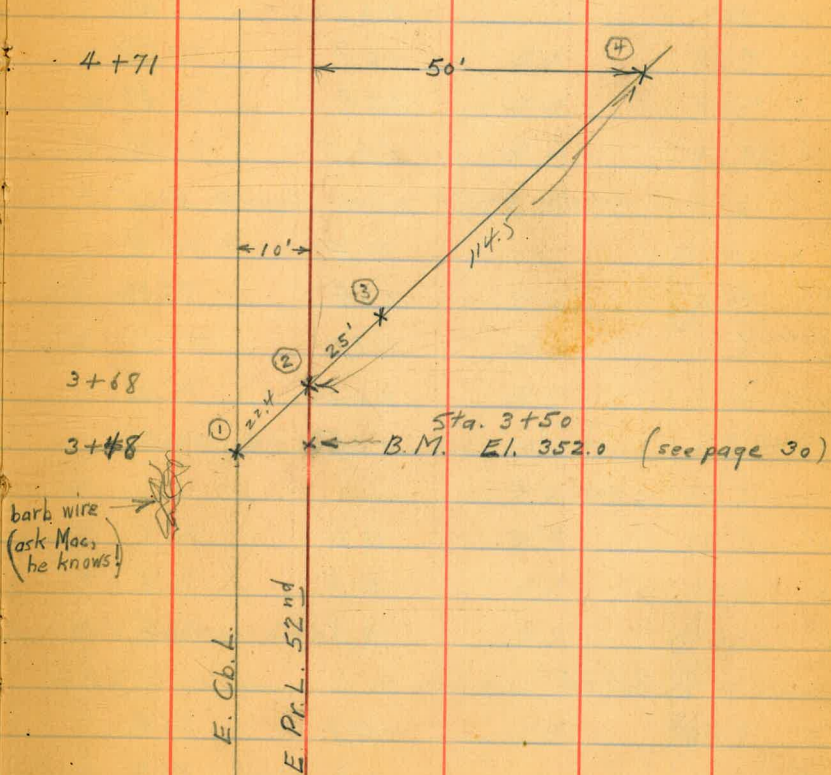 4 + 71
50'
4
114.5
10'
3
25'
2
3 + 68
22.4
1
Sta. 3+50
3+48
B.M. El. 352.0 (see page 30)
barb wire
(ask Mac,
he knows!)
E. Cb. L.
E Pr. L. 52nd